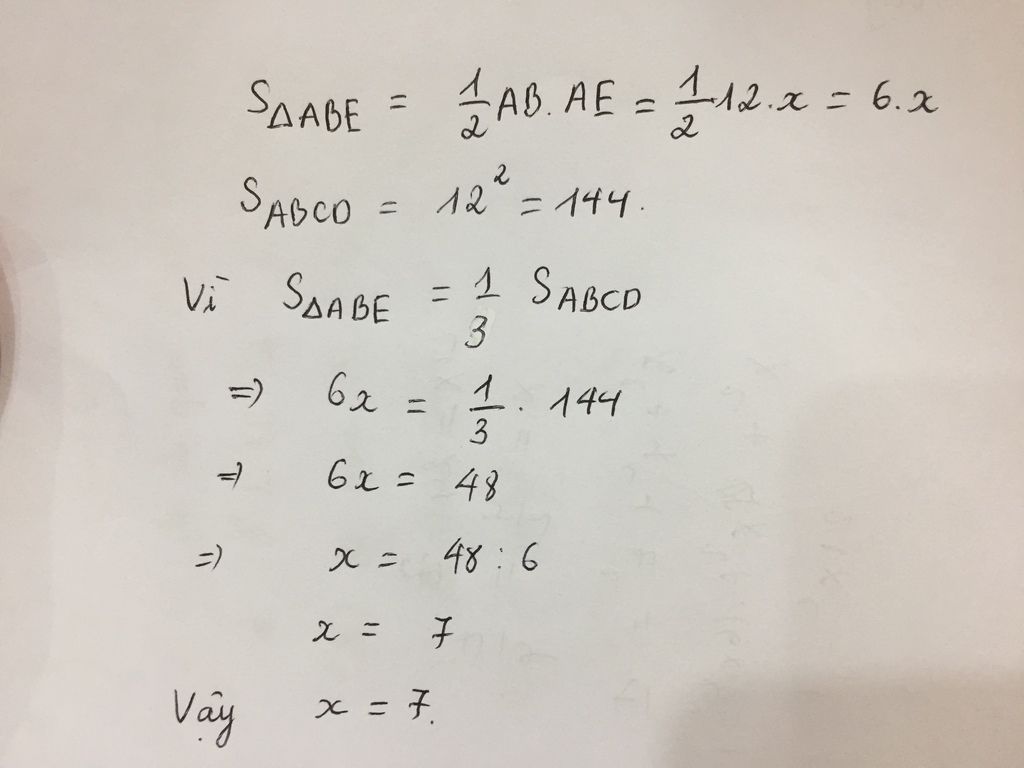 S△ABE = 1/2 AB. AE = 1/2 12.x = 6.x
SABCD = 12² = 144.
Vì S△ABE = 1/3 SABCD
=> 6x = 1/3 . 144
=> 6x = 48
=> x = 48 : 6
x = 7
Vậy x = 7.